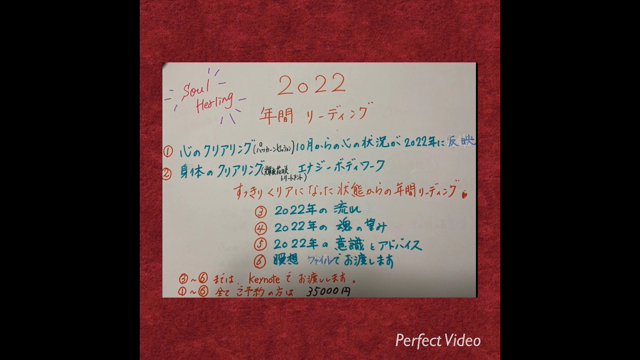 Soul
Herling
2022
年間 リーディング
① 心のクリアリング 10月からの心の状況が2022年に反映
② 身体のクリアリング エナジーボディワーク
すっきりクリアになった状態からの年間リーディング。
③ 2022年の 流れ
④ 2022年の 魂の望み
⑤ 2022年の 意識とアドバイス
⑥ 瞑想 ファイルでお渡します
③〜⑥ までは、Keynoteで お渡しします。
①〜⑥ 全て ご予約の方は 35000円
Perfect Video